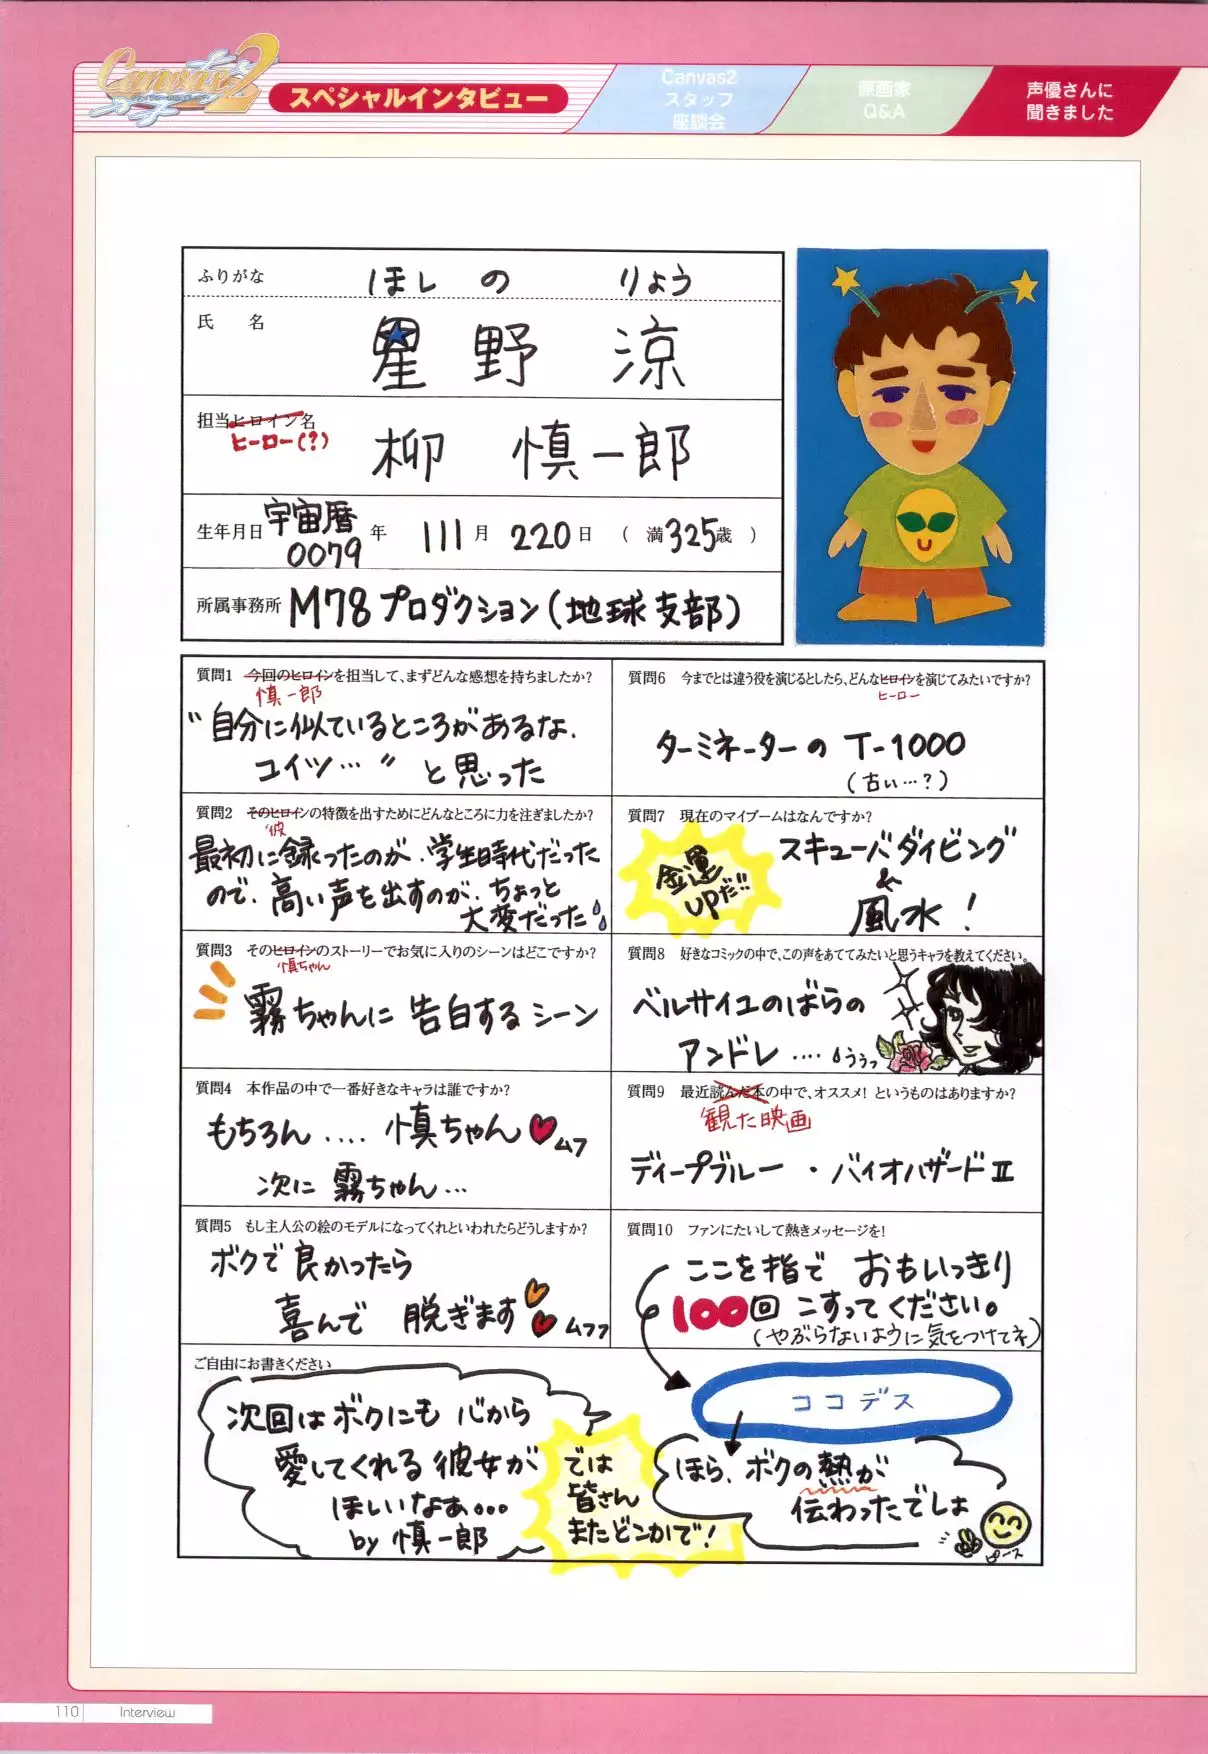 Canvas2
スペシャルインタビュー
Canvas2
スタッフ
座談会
原画家
Q&A
声優さんに
聞きました
ふりがな
ほし の りょう
氏 名
星野 涼
担当ヒロイン名
ヒーロー(?)
柳 慎一郎
生年月日 宇宙暦 0079 年 111 月 220 日 ( 満 325 歳 )
所属事務所 M78プロダクション(地球支部)
質問1 今回のヒロインを担当して、まずどんな感想を持ちましたか?
慎一郎
"自分に似ているところがあるな.
コイツ…" と思った
質問2 そのヒロインの特徴を出すためにどんなところに力を注ぎましたか?
彼
最初に録ったのが、学生時代だった
ので、高い声を出すのが、ちょっと
大変だった
質問3 そのヒロインのストーリーでお気に入りのシーンはどこですか?
慎ちゃん
霧ちゃんに 告白する シーン
質問4 本作品の中で一番好きなキャラは誰ですか?
もちろん.... 慎ちゃん♥ムフ
次に 霧ちゃん…
質問5 もし主人公の絵のモデルになってくれといわれたらどうしますか?
ボクで良かったら
喜んで 脱ぎます ムフフ
質問6 今までとは違う役を演じるとしたら、どんなヒロインを演じてみたいですか?
ヒーロー
ターミネーターの T-1000
(古い…?)
質問7 現在のマイブームはなんですか?
金運
UPだ!!
スキューバダイビング
&
風水!
質問8 好きなコミックの中で、この声をあててみたいと思うキャラを教えてください。
ベルサイユのばらの
アンドレ....うぅっ
質問9 最近読んだ本の中で、オススメ! というものはありますか?
観た映画
ディープブルー・バイオハザードⅡ
質問10 ファンにたいして熱きメッセージを!
ここを指で おもいっきり
100回 こすってください。
(やぶらないように気をつけてネ)
ココデス
ほら、ボクの熱が
伝わったでしょ
ピース
ご自由にお書きください
次回はボクにも 心から
愛してくれる 彼女が
ほしいなぁ...
by 慎一郎
では
皆さん
またどこかで!
110 Interview